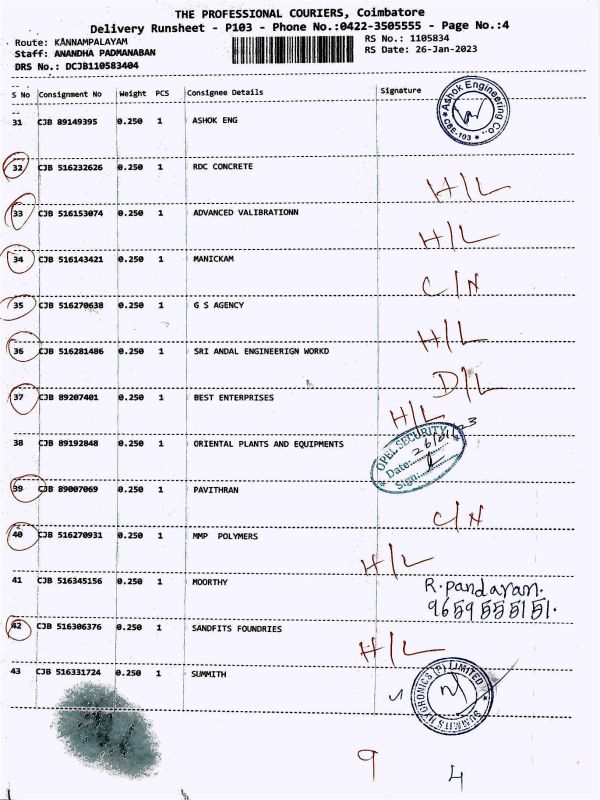 THE PROFESSIONAL COURIERS, Coimbatore
Delivery Runsheet - P103 - Phone No.:0422-3505555 - Page No.:4
Route: KANNAMPALAYAM
RS No.: 1105834
Staff: ANANDHA PADMANABAN
RS Date: 26-Jan-2023
DRS No.: DCJB110583404
S No Consignment No Weight PCS Consignee Details Signature
31 CJB 89149395 0.250 1 ASHOK ENG
Ashok Engineering Co.,
* CBE-103 *
32 CJB 516232626 0.250 1 RDC CONCRETE H/L
33 CJB 516153074 0.250 1 ADVANCED VALIBRATIONN H/L
34 CJB 516143421 0.250 1 MANICKAM C/N
35 CJB 516270638 0.250 1 G S AGENCY H/L
36 CJB 516281486 0.250 1 SRI ANDAL ENGINEERIGN WORKD D/L
37 CJB 89207401 0.250 1 BEST ENTERPRISES H/L
38 CJB 89192848 0.250 1 ORIENTAL PLANTS AND EQUIPMENTS
OPEL SECURITY
Date: 26/01/23
Sign:
39 CJB 89007069 0.250 1 PAVITHRAN C/N
40 CJB 516270931 0.250 1 MMP POLYMERS H/L
41 CJB 516345156 0.250 1 MOORTHY R.pandaran.
9659555151.
42 CJB 516306376 0.250 1 SANDFITS FOUNDRIES H/L
43 CJB 516331724 0.250 1 SUMMITH
SUMMITS HYGRONICS (P) LIMITED
9 4